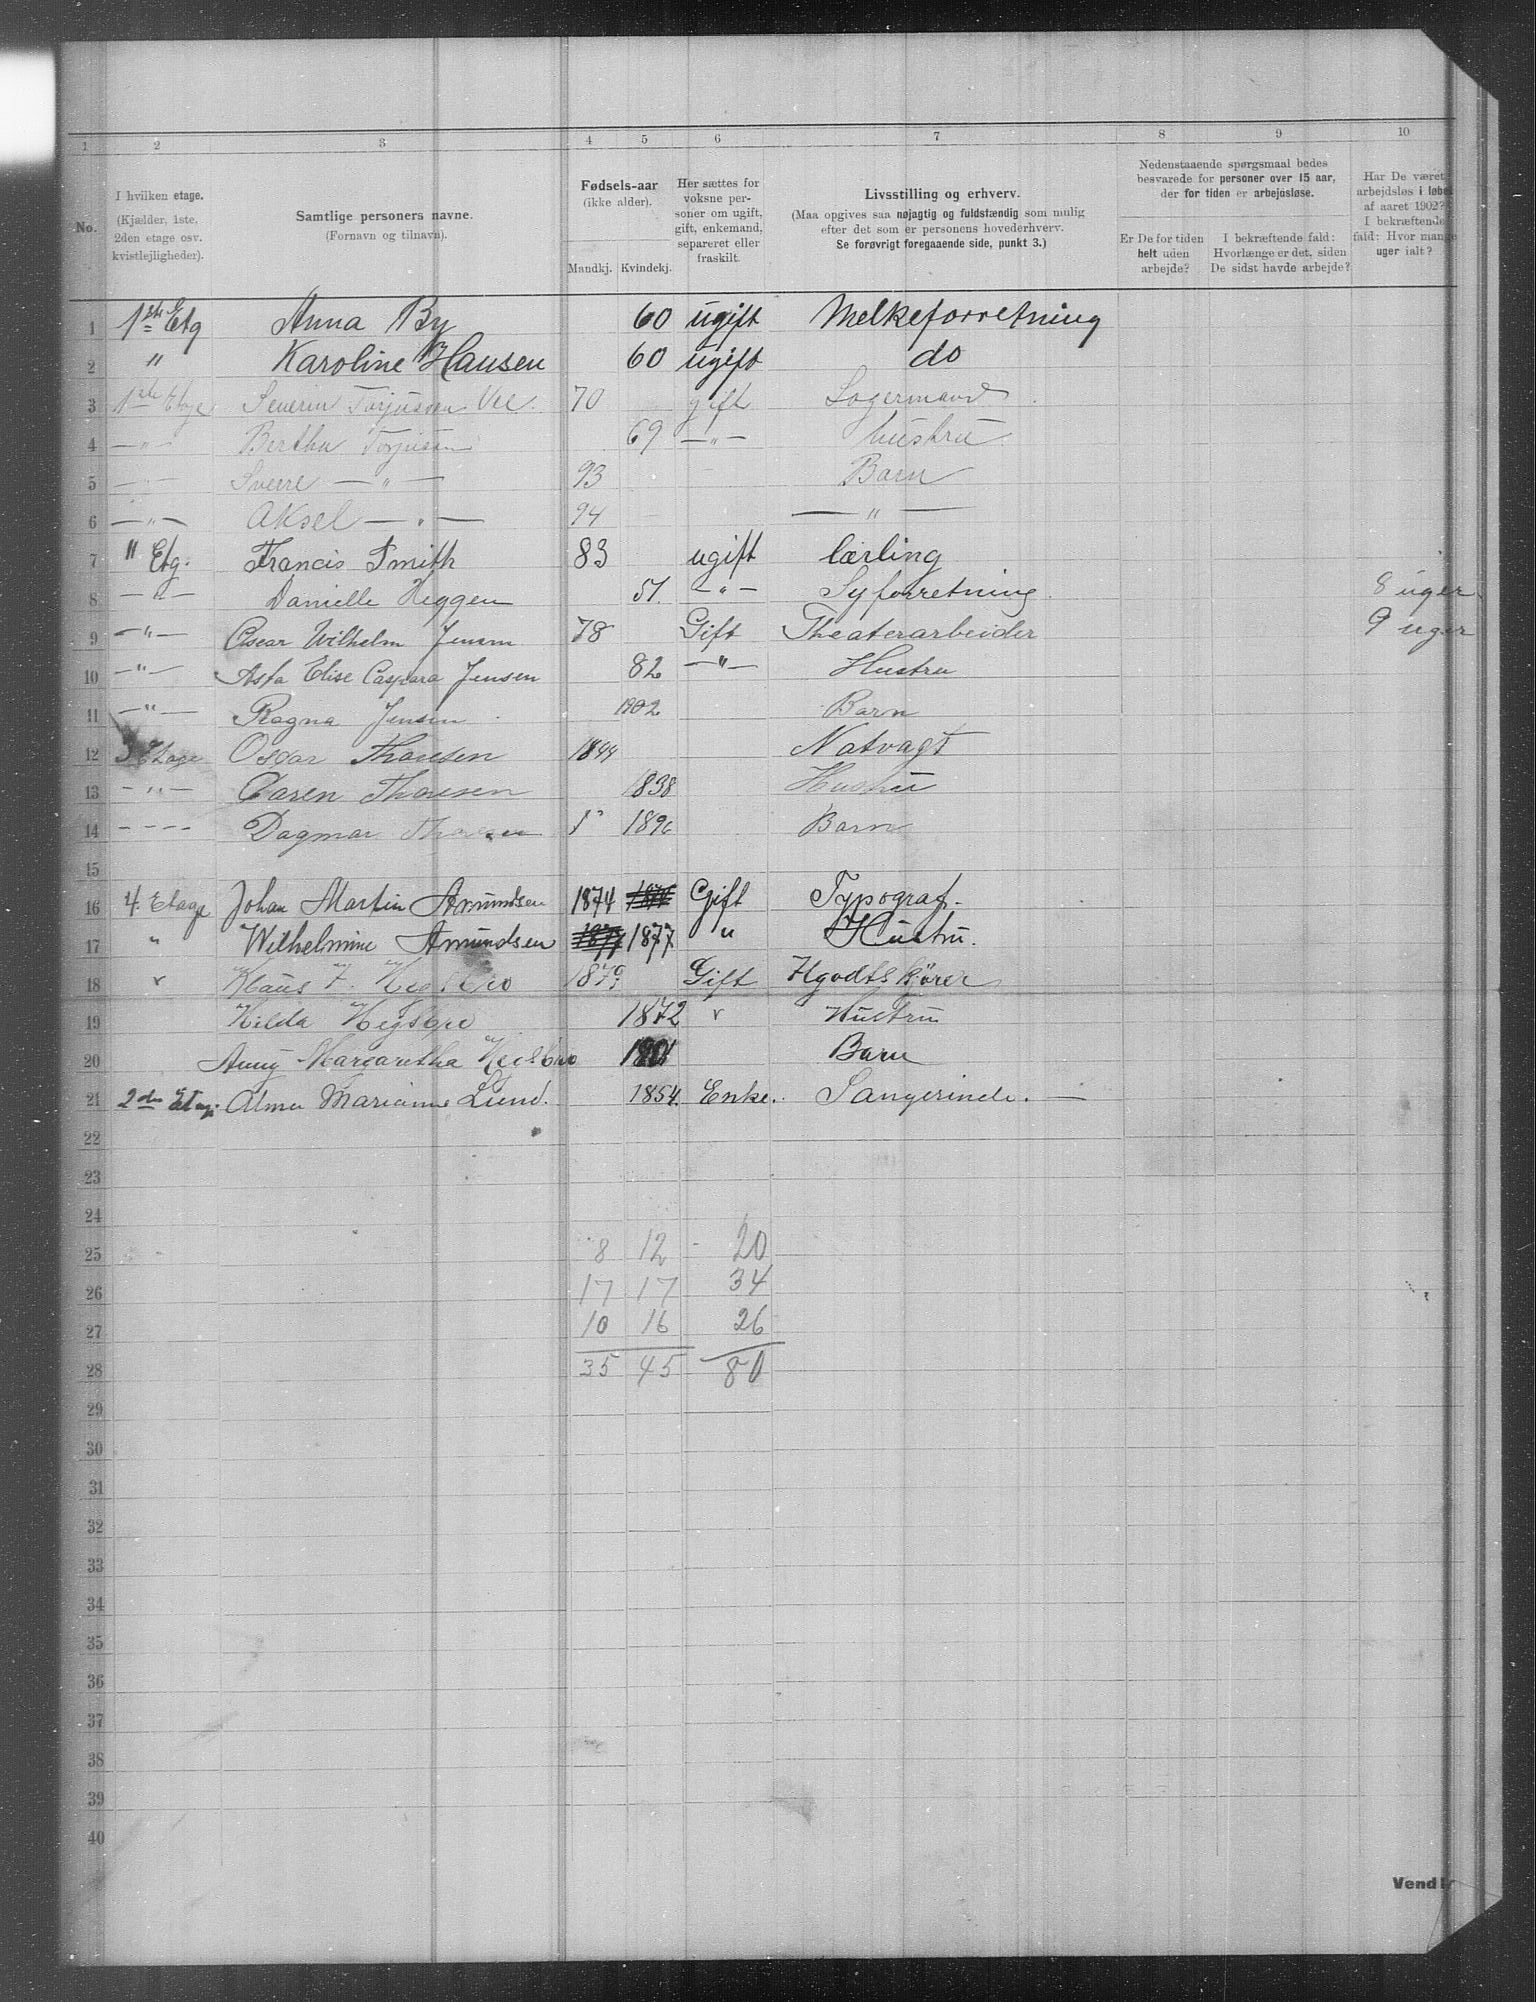 1 2 3 4 5 6 7 8 9 10
No.
I hvilken etage. (Kjælder, 1ste, 2den etage osv. kvistlejligheder).
Samtlige personers navne. (Fornavn og tilnavn).
Fødsels-aar (ikke alder). Mandkj. Kvindekj.
Her sættes for voksne personer om ugift, gift, enkemand, separeret eller fraskilt.
Livsstilling og erhverv. (Maa opgives saa nøjagtig og fuldstændig som mulig efter det som er personens hovederhverv. Se forøvrigt foregaaende side, punkt 3.)
Nedenstaaende spørgsmaal bedes besvarede for personer over 15 aar, der for tiden er arbejdsløse.
Er De for tiden helt uden arbejde?
I bekræftende fald: Hvorlænge er det, siden De sidst havde arbejde?
Har De været arbejdsløs i løbet af aaret 1902? I bekræftende fald: Hvor mange uger ialt?
1 1ste Etg Anna By 60 ugift Melkeforretning
2 " Karoline Hansen 60 ugift do
3 1ste Etage Severin Torjussen Vee. 70 gift Logermand
4 — " — Bertha Torjusen 69 — " — hustru
5 Sverre — " — 93 Barn
6 — " — Aksel — " — 94 — " —
7 " Etg. Francis Smith 83 ugift lærling
8 — " — Danielle Heggen 51. — " — Syforretning 8 uger
9 — " — Oscar Wilhelm Jensen 78 Gift Theaterarbeider 9 uger
10 — " — Asta Elise Caspara Jensen 82 — " — Hustru
11 — " — Ragna Jensen 1902 Barn
12 3 Etage Oscar Thoresen 1844 Natvagt
13 - " - Caren Thoresen 1838 Hustru
14 - - - - Dagmar 1896 Barn
15
16 4. Etage Johan Martin Amundsen 1874 Gift Typograf.
17 " Wilhelmine Amundsen 1877 " Hustru.
18 Klaus 1879 Gift
19 Hilda 1872 Hustru
20 Margaretha 1901 Barn
21 2den Etage Alma Marianne Lund. 1854. Enke. Sangerinde. —
22
23
24
25 8 12 - 20
26 17 17 34
27 10 16 26
28 35 45 80
29
30
31
32
33
34
35
36
37
38
39
40
Vend